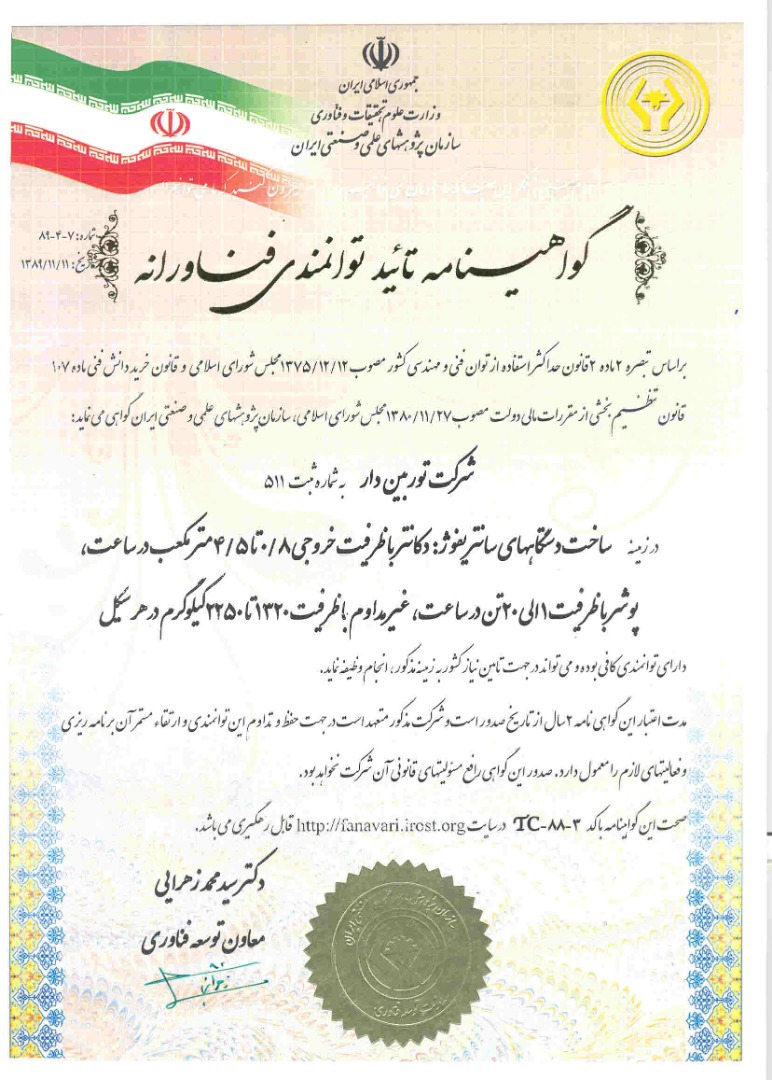 جمهوری اسلامی ایران
وزارت علوم تحقیقات و فناوری
سازمان پژوهشهای علمی و صنعتی ایران
شماره: ۷-۴-۸۹
تاریخ: ۱۳۸۹/۱۱/۱۱
گواهینامه تائید توانمندی فناورانه
براساس تبصره ۲ ماده ۲ قانون حداکثر استفاده از توان فنی و مهندسی کشور مصوب ۱۳۷۵/۱۲/۱۲ مجلس شورای اسلامی و قانون خرید دانش فنی ماده ۱۰۷
قانون تنظیم بخشی از مقررات مالی دولت مصوب ۱۳۸۰/۱۱/۲۷ مجلس شورای اسلامی، سازمان پژوهشهای علمی و صنعتی ایران گواهی می نماید:
شرکت توربین دار به شماره ثبت ۵۱۱
در زمینه ساخت دستگاههای سانتریفوژ: دکانتر با ظرفیت خروجی ۰/۸ تا ۴/۵ متر مکعب در ساعت،
پوشر با ظرفیت ۱ الی ۲۰ تن در ساعت، غیر مداوم با ظرفیت ۱۳۲۰ تا ۲۲۵۰ کیلوگرم در هر سیکل
دارای توانمندی کافی بوده و می تواند در جهت تامین نیاز کشور به زمینه مذکور، انجام وظیفه نماید.
مدت اعتبار این گواهی نامه ۲ سال از تاریخ صدور است و شرکت مذکور متعهد است در جهت حفظ و تداوم این توانمندی و ارتقاء مستمر آن برنامه ریزی
و فعالیتهای لازم را معمول دارد. صدور این گواهی رافع مسئولیتهای قانونی آن شرکت نخواهد بود.
صحت این گواهینامه با کد TC-۸۸-۳ در سایت http://fanavari.irost.org قابل رهگیری می باشد.
دکتر سید محمد زهرایی
معاون توسعه فناوری